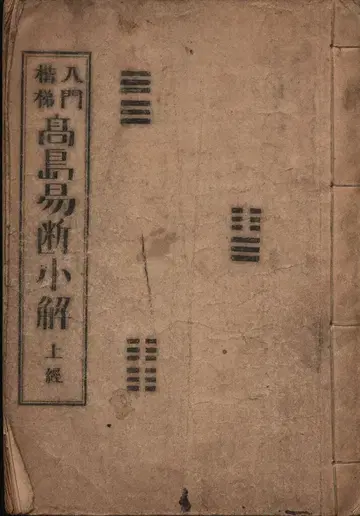 入門
楷梯
高島易断小解
上經